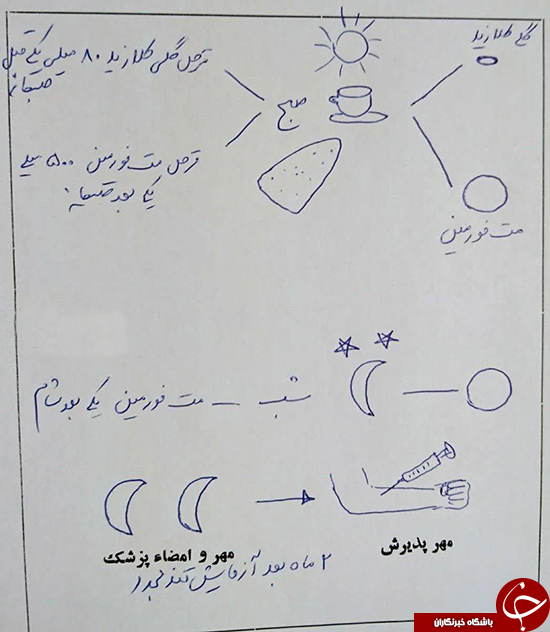 قرص گلی کلازید ۸۰ میلی یکی قبل
صبحانه
صبح
گلی کلازید
قرص مت فورمین ۵۰۰ میلی
یکی بعد صبحانه
مت فورمین
شب – مت فورمین یکی بعد شام
مهر پذیرش
مهر و امضاء پزشک
۲ ماه بعد آزمایش قند مجدد
باشگاه خبرنگاران